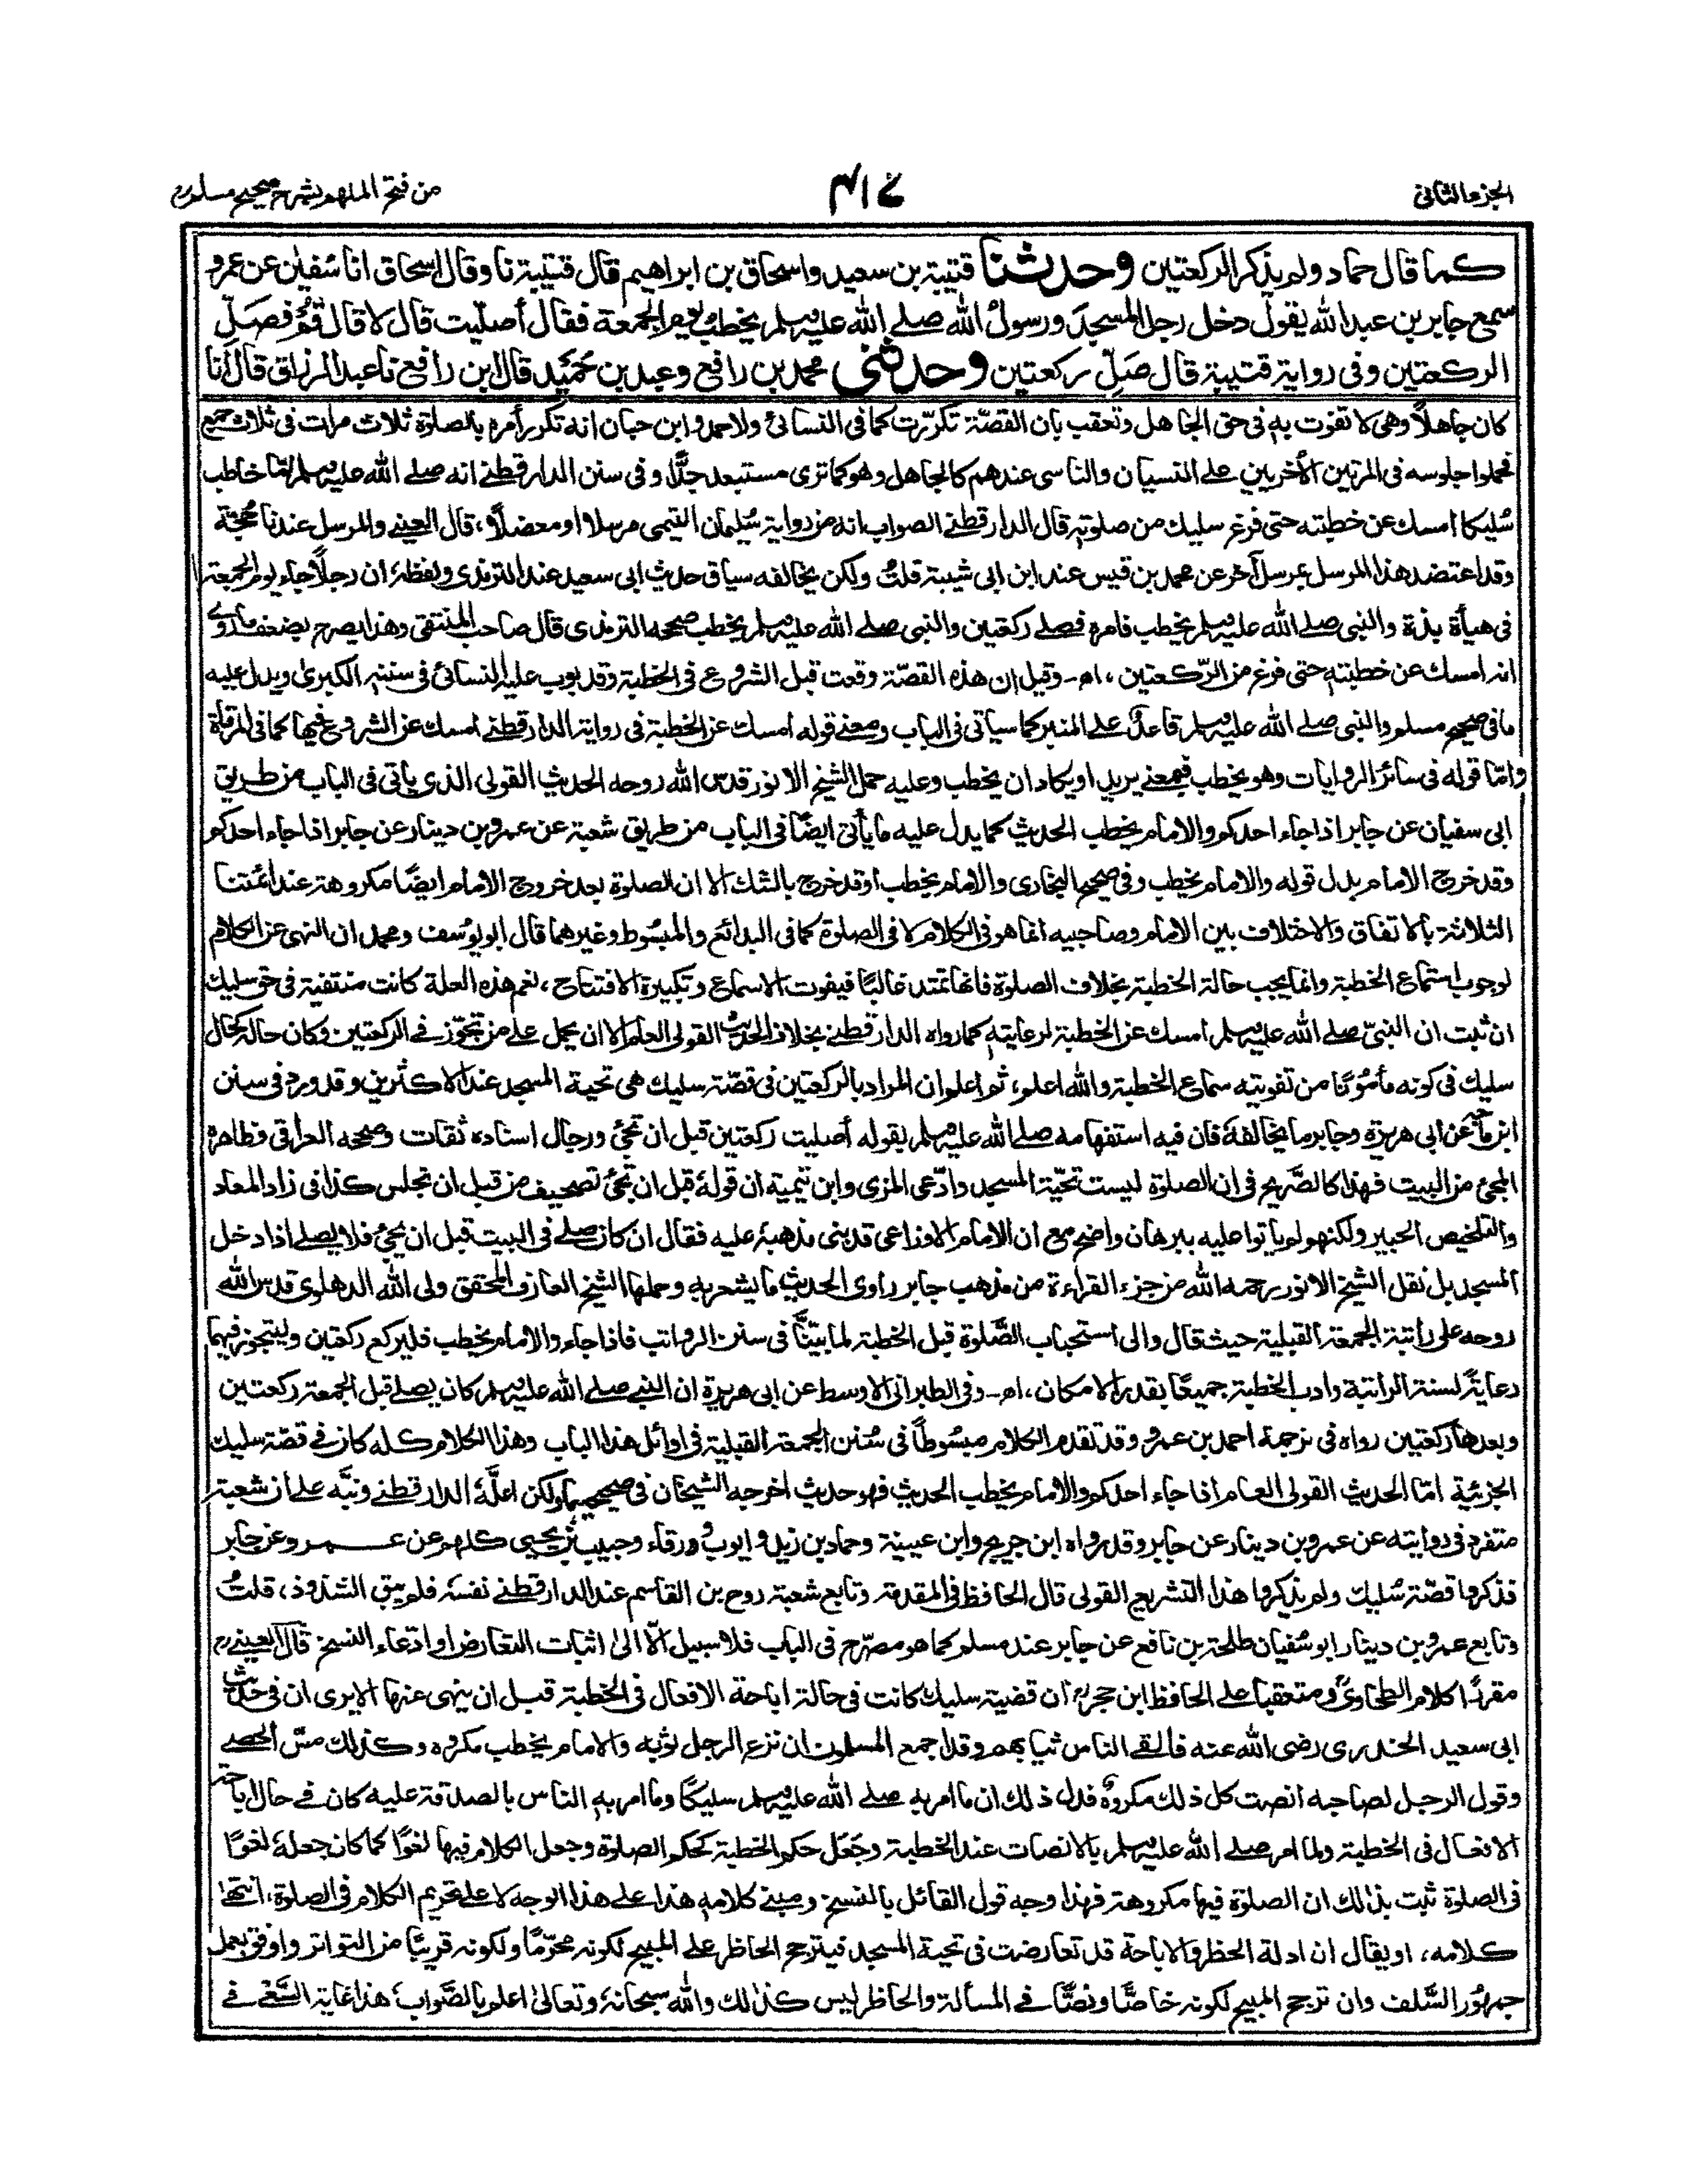 الجزء الثانى
٤١٧
من فتح الملهم بشرح صحيح مسلم
كما قال حماد ولم يذكر الركعتين وحدثنا قتيبة بن سعيد واسحاق بن ابراهيم قال قتيبة نا وقال اسحاق انا سفين عن عمرو
سمع جابر بن عبد الله يقول دخل رجل المسجد ورسول الله صلے الله عليه وسلم يخطب يوم الجمعة فقال أصليت قال لا قال قم فصل
الركعتين وفى رواية قتيبة قال صل ركعتين وحدثنى محمد بن رافع وعبد بن حميد قال ابن رافع نا عبد الرزاق قال انا
كان جاهلاً وهى لا تفوت به فى حق الجاهل وتعقب بان القصّة تكررت كما فى النسائى ولاحمد وابن حبان انه تكرر أمره بالصلوة ثلاث مرات فى ثلاث جمع
فحملوا جلوسه فى المرتين الأخريين على النسيان والناسى عندهم كالجاهل وهو كما ترى مستبعد جدًّا وفى سنن الدارقطنے انه صلے الله عليه وسلم لما خاطب
سُليكا امسك عن خطبته حتى فرغ سليك من صلوته قال الدارقطنے الصواب انه من رواية سُليمان التيمى مرسلا او معضلاً، قال العينے والمرسل عندنا حُجّة
وقد اعتضد هذا المرسل بمرسل آخر عن محمد بن قيس عند ابن ابى شيبة قلتُ ولكن يخالفه سياق حديث ابى سعيد عند الترمذى ولفظه ان رجلاً جاء يوم الجمعة
فى هيأة بذة والنبى صلے الله عليه وسلم يخطب فامره فصلے ركعتين والنبى صلے الله عليه وسلم يخطب صححه الترمذى قال صاحب المنتقى وهذا يصرح بضعف ماروى
انه امسك عن خطبته حتى فرغ من الرّكعتين، اھ- وقيل ان هذه القصّة وقعت قبل الشروع فى الخطبة وقد بوب عليه النسائى فى سننه الكبرى ويدل عليه
ما فى صحيح مسلم والنبى صلے الله عليه وسلم قاعدٌ على المنبر كما سيأتى فى الباب ومعنے قوله امسك عن الخطبة فى رواية الدارقطنے امسك عن الشروع فيها كما فى المرقاة
وامّا قوله فى سائر الروايات وهو يخطب فبمعنے يريد او يكاد ان يخطب وعليه حمل الشيخ الانور قدس الله روحه الحديث القولى الذى يأتى فى الباب من طريق
ابى سفيان عن جابر اذا جاء احدكم والامام يخطب الحديث كما يدل عليه ما يأتى ايضًا فى الباب من طريق شعبة عن عمرو بن دينار عن جابر اذا جاء احدكم
وقد خرج الامام بدل قوله والامام يخطب وفى صحيح البخارى والامام يخطب او قد خرج بالشك الا ان الصلوة بعد خروج الامام ايضًا مكروهة عند ائمتنا
الثلاثة بالاتفاق والاختلاف بين الامام وصاحبيه انما هو فى الكلام لا فى الصلوة كما فى البدائع والمبسوط وغيرهما قال ابو يوسف ومحمد ان النهى عن الكلام
لوجوب استماع الخطبة وانما يجب حالة الخطبة بخلاف الصلوة فانها تمتد غالبًا فيفوت الاستماع وتكبيرة الافتتاح، نعم هذه العلة كانت منتفية فى حق سليك
ان ثبت ان النبىّ صلے الله عليه وسلم امسك عن الخطبة لرعايته كما رواه الدارقطنے بخلاف الحديث القولى العام الا ان يحمل على من تجوّز فے الركعتين وكان حاله كحال
سليك فى كونه مأمونًا من تفويته سماع الخطبة والله اعلم، ثم اعلم ان المراد بالركعتين فى قصّة سليك هى تحية المسجد عند الاكثرين وقد ورد فى سنن
ابن ماجه عن ابى هريرة وجابر ما يخالفه فان فيه استفهامه صلے الله عليه وسلم بقوله أصليت ركعتين قبل ان تجئ ورجال اسناده ثقات وصححه العراقى وظاهره
المجئ من البيت فهذا كالصّريح فى ان الصلوة ليست تحيّة المسجد وادّعى المزى وابن تيمية ان قوله قبل ان تجئ تصحيف من قبل ان تجلس كذا فى زاد المعاد
والتلخيص الحبير ولكنهم لم يأتوا عليه ببرهان واضح مع ان الامام الاوزاعى قد بنى مذهبه عليه فقال ان كان صلے فى البيت قبل ان يجئ فلا يصلے اذا دخل
المسجد بل نقل الشيخ الانور رحمه الله من جزء القراءة من مذهب جابر راوى الحديث ما يشعر به وحملها الشيخ العارف المحقق ولى الله الدهلوى قدس الله
روحه على راتبة الجمعة القبلية حيث قال والى استحباب الصّلوة قبل الخطبة لما بيّنّا فى سنن الرواتب فاذا جاء والامام يخطب فليركع ركعتين وليتجوز فيهما
رعايةً لسنة الراتبة وادب الخطبة جميعًا بقدر الامكان، اھ- وفى الطبرانى الاوسط عن ابى هريرة ان النبے صلے الله عليه وسلم كان يصلے قبل الجمعة ركعتين
وبعدها ركعتين رواه فى ترجمة احمد بن عمرو وقد تقدم الكلام مبسوطاً فى سُنن الجمعة القبلية فى اوائل هذا الباب وهذا الكلام كله كان فے قصّة سليك
الجزئية امّا الحديث القولى العام اذا جاء احدكم والامام يخطب الحديث فهو حديث اخرجه الشيخان فى صحيحيهما ولكن اعلّه الدارقطنے ونبّه على ان شعبة
متفرد فى روايته عن عمرو بن دينار عن جابر وقد رواه ابن جريج وابن عيينة وحماد بن زيد وايوب وورقاء وحبيب بن يحيى كلهم عن عمرو عن جابر
فذكروا قصّة سُليك ولم يذكروا هذا التشريع القولى قال الحافظ فى المقدمة وتابع شعبة روح بن القاسم عند الدارقطنے نفسه فلم يبق الشذوذ، قلتُ
وتابع عمرو بن دينار ابو سُفيان طلحة بن نافع عن جابر عند مسلم كما هو مصرّح فى الباب فلا سبيل الّا الى اثبات التعارض او ادّعاء النسخ قال العينے رح
مقررًا كلام الطحاوى ومتعقبا على الحافظ ابن حجر رح ان قضية سليك كانت فى حالة اباحة الافعال فى الخطبة قبل ان ينهى عنها الا يرى ان فى حديث
ابى سعيد الخدرى رضى الله عنه فألقے الناس ثيابهم وقد اجمع المسلمون ان نزع الرجل ثوبه والامام يخطب مكروه وكذلك مسّ الحصے
وقول الرجل لصاحبه انصت كل ذلك مكروه فدل ذلك ان ما امر به صلے الله عليه وسلم سليكًا وما امر به الناس بالصدقة عليه كان فے حال اباحة
الافعال فى الخطبة ولما امر صلے الله عليه وسلم بالانصات عند الخطبة وجَعَل حكم الخطبة كحكم الصلوة وجعل الكلام فيها لغوًا كما كان جعله لغوًا
فى الصلوة ثبت بذلك ان الصلوة فيها مكروهة فهذا وجه قول القائل بالنسخ ومبنے كلامه هذا على هذا الوجه لا على تحريم الكلام فى الصلوة، انتهى
كلامه، او يقال ان ادلة الحظر والاباحة قد تعارضت فى تحية المسجد فيترجح الحاظر على المبيح لكونه محرّمًا ولكونه قريبًا من التواتر واوفق بعمل
جمهُور السّلف وان ترجح المبيح لكونه خاصًّا ونصًّا فے المسألة والحاظر ليس كذلك والله سبحانه وتعالى اعلم بالصّواب، هذا غاية السَّعْى فے